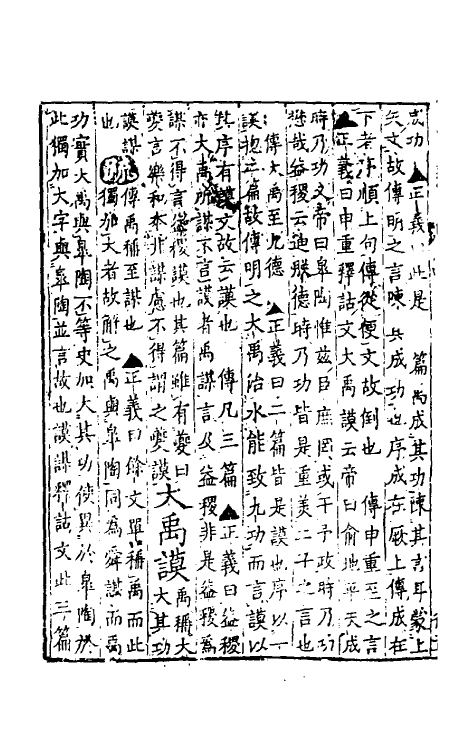 成功▲正義曰此是 篇禹成其功陳其言耳蒙上
矢文故傳明之言陳其成功也序成在厥上傳成在
下者序順上句傳從便文故倒也 傳申重至之言
▲正義曰申重釋詁文大禹謨云帝曰俞地平天成
時乃功又帝曰臯陶惟兹臣庶罔或干予政時乃功
懋哉益稷云迪朕德時乃功皆是重美二子之言也
傳大禹至九德 ▲正義曰二篇皆是謨也序以一
謨摠二篇故傳明之大禹治水能致九功而言謨以
其序有謨文故云謨也 傳凡三篇▲正義曰益稷
亦大禹所謀不言謨者禹謀言及益稷非是益稷為
謀不得言益稷謨也其篇雖有夔曰
夔言樂和本非謀慮不得謂之夔謨
大禹謨
禹稱大
大其功
謨謀
也
疏
傳禹稱至謀也 ▲正義曰餘文單稱禹而此
獨加大者故解之禹與臯陶同為舜謀而禹
功實大禹與臯陶不等史加大其功使異於臯陶於
此獨加大字與臯陶並言故也謨謀釋詁文此三篇